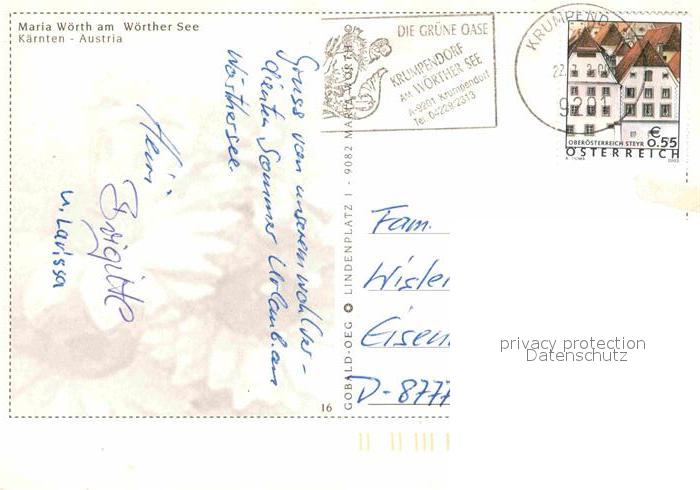 Maria Wörth am Wörther See
Kärnten - Austria
Gruss von unserem wohlver-
dienten Sommer Urlaub am
Wörthersee
Heini
Brigitte
u. Larissa
GOBALD-OEG LINDENPLATZ 1 - 9082 MARIA WÖRTH
16
DIE GRÜNE OASE
KRUMPENDORF
AM WÖRTHER SEE
A-9201 Krumpendorf
Tel. 04229/2313
KRUMPEND
22.
9201
€
0.55
OBERÖSTERREICH STEYR
ÖSTERREICH
2003
Fam.
Wisle
Eisen
D-8777
privacy protection
Datenschutz